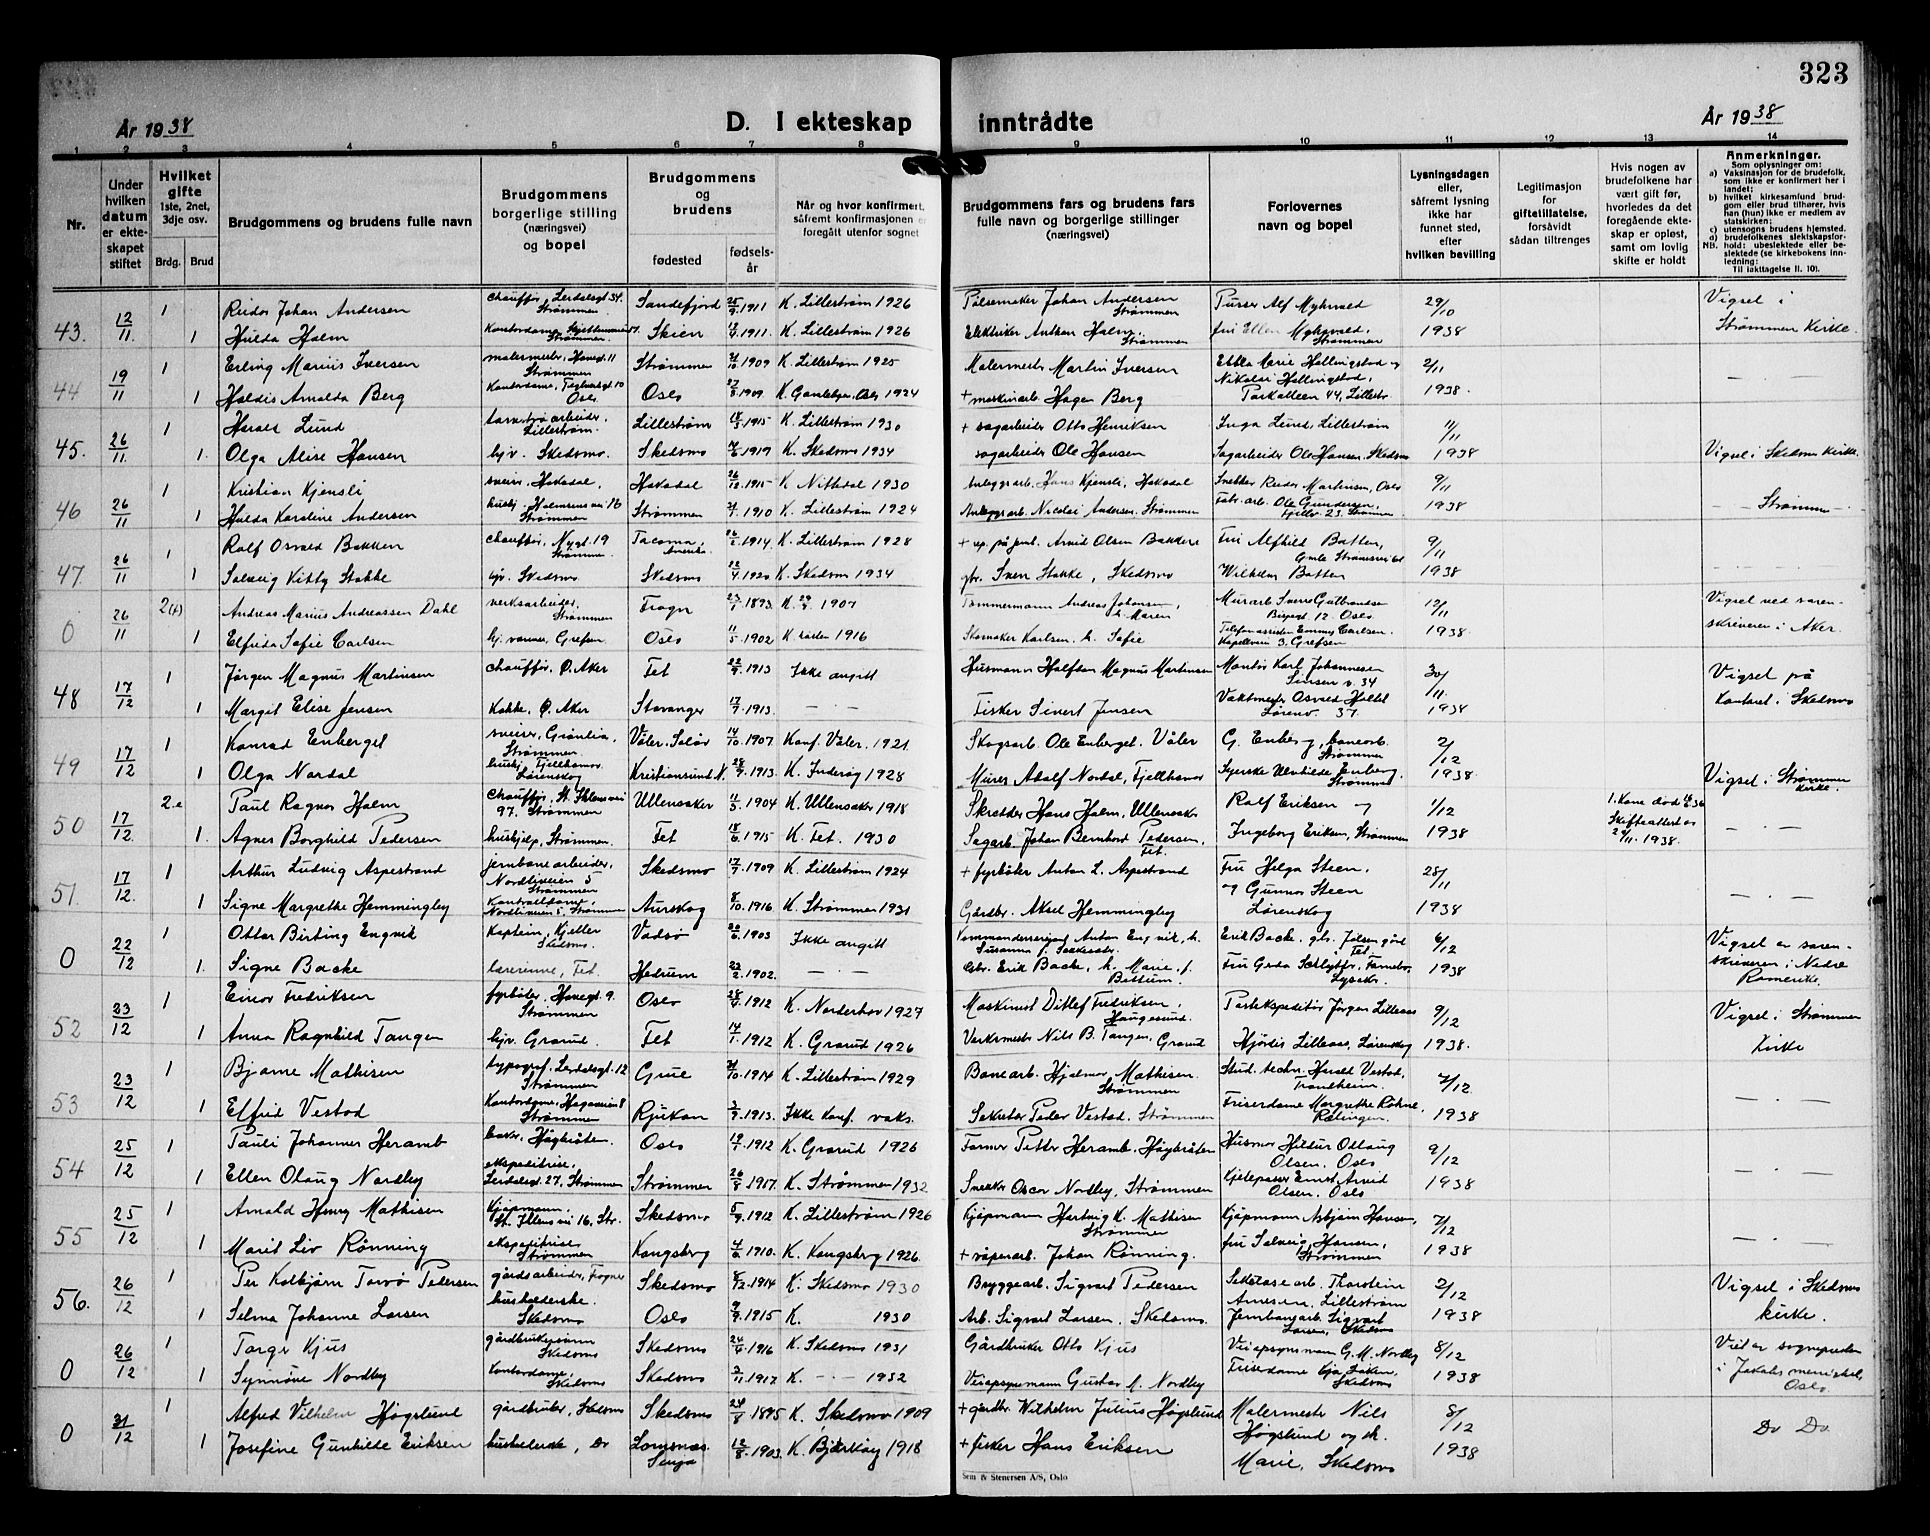 323
År 1938
D. I ekteskap inntrådte
År 1938
1 2 3 4 5 6 7 8 9 10 11 12 13 14
Nr.
Under hvilken datum er ekteskapet stiftet
Hvilket gifte 1ste, 2net, 3dje osv.
Brdg. Brud
Brudgommens og brudens fulle navn
Brudgommens borgerlige stilling (næringsvei) og bopel
Brudgommens og brudens
fødested
fødselsår
Når og hvor konfirmert, såfremt konfirmasjonen er foregått utenfor sognet
Brudgommens fars og brudens fars fulle navn og borgerlige stillinger (næringsvei)
Forlovernes navn og bopel
Lysningsdagen eller, såfremt lysning ikke har funnet sted, efter hvilken bevilling
Legitimasjon for giftetillatelse, forsåvidt sådan tiltrenges
Hvis nogen av brudefolkene har vært gift før, hvorledes da det foregående ekteskap er opløst, samt om lovlig skifte er holdt
Anmerkninger.
Som oplysninger om:
a) Vaksinasjon for de brudefolk, som ikke er konfirmert her i landet;
b) hvilket kirkesamfund brudgom eller brud tilhører, hvis han (hun) ikke er medlem av statskirken;
c) utensogns brudens hjemsted.
d) brudefolkenes slektskapsforhold: ubeslektede eller beslektede (se kirkebokens innledning:
NB. Til iakttagelse II. 10).
43. 12/11 1 Reidar Johan Andersen chauffør, Lerdalsgt 34. Strømmen Sandefjord 1911 K. Lillestrøm 1926 Pølsemaker Johan Andersen Strømmen Pusser Alf Myhrvold 29/10 Vigsel i
1 Hulda Holm Kontordame Strømmen Skien 1911. K. Lillestrøm 1926 Elektriker Anthon Holm, Strømmen fru Ellen Myhrvold, Strømmen 1938 Strømmen Kirke.
44 19/11 1 Erling Marius Iversen malermester, Haveg. 11 Strømmen Strømmen 1909 K. Lillestrøm 1925 Malermester Martin Iversen Ebba Marie Hallingstad og Nikolai Hallingstad, 2/11
1 Haldis Arnalda Berg Kontordame, 10 Oslo Oslo 1909 K. Gamlebyen, Oslo 1924 + maskinarb. Hagen Berg Parkalleen 44, Lillestr. 1938.
45. 26/11 1 Harald Lund arbeider, Lillestrøm Lillestrøm 1915 K. Lillestrøm 1930 + sagarbeider Otto Henriksen Inga Lund, Lillestrøm 11/11
1. Olga Alise Hansen hjv. Skedsmo. Skedsmo 1919 K. Skedsmo 1934 sagarbeider Ole Hansen Sagarbeider Ole Hansen. Skedsmo 1938 Vigsel i Skedsmo Kirke.
46 26/11 1 Kristian Kjensli sveiser, Hakadal, Hakadal 1915 K. Nittedal 1930 Anleggsarb. Hans Kjensli, Hakadal Snekker Reidar Martinsen, Oslo 9/11
1 Hulda Karoline Andersen Strømmen Strømmen 1910 K. Lillestrøm 1924 Anleggsarb. Nicolai Andersen. Strømmen Fabr. arb. Ole Gundersen, Fjellv. 23. Strømmen 1938 – Strømmen –
47. 26/11 1 Rolf Osvald Bakken chauffør, Nygt. 19 Strømmen Tacoma, Amerika 1914. K. Lillestrøm 1928 Arvid Olsen Bakken Fru Alfhild Batten, 9/11
1 Solveig Kitty Stokke hjv. Skedsmo Skedsmo 1920 K. Skedsmo 1934 gbr. Sven Stokke, Skedsmo Wilhelm Batten 1938
0 26/11 2(f) Andreas Marius Andreassen Dahl verksarbeider, Strømmen Frogn 1893. K. 1907 Tømmermann Andreas Johansen, Murarb. Sverre Gulbrandsen Oslo. 12/11 Vigsel ved soren-
1 Elfrida Sofie Carlsen Grefsen Oslo 1902 1916 Skomaker Karlsen. h. Sofie Telefonassistent Emmy Carlsen. Kapellveien 3. Grefsen 1938. skriveren i Aker.
48 17/12 1 Jørgen Magnus Martinsen chauffør, Ø. Aker Fet 1913 Ikke angitt Husmann Halfdan Magnus Martinsen Montør Karl Johannesen Sinsen v. 34 30/11. Vigsel på
1 Margit Elise Jensen Kokke, Ø. Aker Stavanger 1913. – – Fisker Sivert Jensen Vaktmester Osvald Lørenv. 37. 1934 kontoret i Skedsmo
49 17/12 1 Konrad Enberget sveiser, Grønlia, Strømmen Våler, Solør 1907 Konf. Våler. 1921 Skogsarb. Ole Enberget. Våler G. Enberg, banearb. Strømmen 2/12
1 Olga Nordal Fjellhamar Lørenskog Kristiansund N. 1913. K. Inderøy 1928 Murer Adolf Nordal, Fjellhamar Enberg Strømmen 1938. Vigsel i Strømmen Kirke.
50 17/12. 2.e Paul Ragnar Holm chauffør, 97. Strømmen Ullensaker 1904 K. Ullensaker 1918 Skredder Hans Holm, Ullensaker Rolf Eriksen og 1/12 1. Kone død 36
1. Agnes Borghild Pedersen hushjelp, Strømmen. Fet 1915 K. Fet. 1930 Sagarb. Johan Bernhard Pedersen, Fet. Ingeborg Eriksen, Strømmen 1938 Skifteattest av 24/11. 1938. – –
51. 17/12. 1 Arthur Ludvig Aspestrand jernbanearbeider, Nordliveien 5 Strømmen Skedsmo 1909 K. Lillestrøm 1924 + fyrbøter Anton L. Aspestrand Fru Helga Steen. 28/11
1 Signe Margrethe Hemmingby Nordliveien 5. Strømmen Aurskog 1916 K. Strømmen 1931 Gårdbr. Aksel Hemmingby og Gunnar Steen Lørenskog 1938 – –
0 22/12 1 Ottar Birting Engvik Kaptein, Kjeller Skedsmo. Vadsø 1903 Ikke angitt Anton Engvik, h. Susanna Erik Backe, gbr. Fet 6/12 Vigsel av soren-
1. Signe Backe lærerinne, Fet. Hedrum 1902. – – Gbr. Erik Backe, h. Marie, f. Fru Gerda Lysaker. 1938. skriveren i Nedre Romerike.
52 23/12 1 Einar Fredriksen fyrbøter, Havegt. 9. Strømmen Oslo 1912 K. Norderhov 1927 Maskinist Ditlef Fredriksen, Haugesund. Jørgen Lilleaas 9/12 Vigsel i Strømmen
1 Anna Ragnhild Tangen hjv. Grorud. Fet 1912 K. Grorud 1926 Verksmester Nils B. Tangen, Grorud Hjørdis Lilleaas, Lørenskog 1938. Kirke
53 23/12 1 Bjarne Mathisen typograf. Lerdalsgt. 12 Strømmen Grue 1914 K. Lillestrøm 1929 Banearb. Hjalmar Mathisen. Strømmen Stud. techn. Harald Vestad, Trondheim. 7/12
1 Elfrid Vestad Kontordame, Strømmen Rjukan 1913. Ikke Konf. vaks. Peder Vestad. Strømmen Friserdame Margrethe Röhne, Rælingen. 1938 – –
54 25/12 1 Pauli Johannes Heramb baker, Høybråten. Oslo 1912 K. Grorud 1926 Former Petter Heramb. Høybråten Husmor Hildur Otlaug Olsen. Oslo 9/12
1 Ellen Olaug Nordby ekspeditrise, Lerdalsgt. 27, Strømmen Strømmen 1917. K. Strømmen 1932 Snekker Oscar Nordby, Strømmen Ernst Arvid Olsen. Oslo 1938 – –
55 25/12 1 Arnold Henry Mathisen Kjøpmann, 16, Str. Skedsmo 1912 K. Lillestrøm 1926 Kjøpmann Hartvig K. Mathisen Strømmen Kjøpmann Asbjørn Hansen, 7/12
1 Marit Liv Rønning ekspeditrise Strømmen Kongsberg 1910. K. Kongsberg 1926. + våpenarb. Johan Rønning. fru Solveig Hansen, Strømmen 1938 – –
56. 26/12 1 Per Kolbjørn Torvø Pedersen gårdsarbeider, Frogner Skedsmo 1914 K. Skedsmo 1930 Bryggearb. Sigvart Pedersen Thorstein Arnesen, Lillestrøm 2/12 Vigsel i Skedsmo
1 Selma Johanne Larsen husholderske. Skedsmo Oslo 1915 K. 1930 Arb. Sigvart Larsen. Skedsmo. Jernbanearb. Sigvart Larsen, Skedsmo 1938 kirke.
0 26/12 1 Torger Kjus Skedsmo Skedsmo 1916 K. Skedsmo 1931 Gårdbruker Otto Kjus Veiopsynsmann G. M. Nordby 8/12 Viet av sognepresten
1 Synnøve Nordby Kontordame, Skedsmo Skedsmo 1917 K. – – 1932 Veiopsynsmann Gustav M. Nordby Skedsmo 1938 i Jakobs menighet, Oslo
0 31/12 1 Alfred Vilhelm Høgslund gårdbruker, Skedsmo Skedsmo 1895 K. Skedsmo 1909 + gårdbr. Wilhelm Julius Høgslund Malermester Nils 8/12 Do Do
1 Josefine Gunhilde Eriksen husholderske, Do Senja 1903. K. Bjarkøy 1918 + fisker Hans Eriksen Høgslund og Marie, Skedsmo 1938
Sem & Stenersen A/S, Oslo